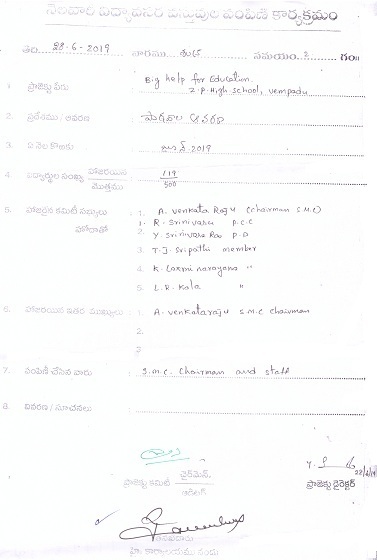 నెలవారి విద్యావసర వస్తువుల పంపిణీ కార్యక్రమం
తేం. 28-6-2019 వారము శుక్ర సమయం గం॥
1. ప్రాజెక్టు పేరు : Big help for Education.
Z.P. High school, vempadu
2. ప్రదేశము / ఆవరణ : పాఠశాల ఆవరణ
3. ఏ నెల కొరకు : జూన్ 2019
4. విద్యార్థుల సంఖ్య హాజరయిన / మొత్తము : 119 / 500
5. హాజరైన కమిటీ సభ్యులు : 1. A. venkata Raju (chairman S.M.C)
హోదాతో 1. R. Srinivasu P.C.C
2. Y. Srinivasa Rao P.D
3. T.J. Sripathi member
4. K. Laxmi narayana "
5. L.R. Kala "
6. హాజరయిన ఇతర ముఖ్యులు : 1. A. venkataraju S.M.C chairman
2.
3
7. పంపిణీ చేసిన వారు : S.M.C. Chairman and staff
8. వివరణ / సూచనలు :
ప్రాజెక్టు కమిటీ ఛైర్మెన్.
ప్రాజెక్టు డైరెక్టర్